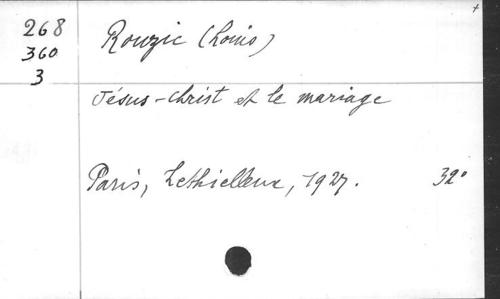 268
360
3
Rouzic (Louis)
Jésus-Christ et le mariage
Paris, Lethielleux, 1927. 32°